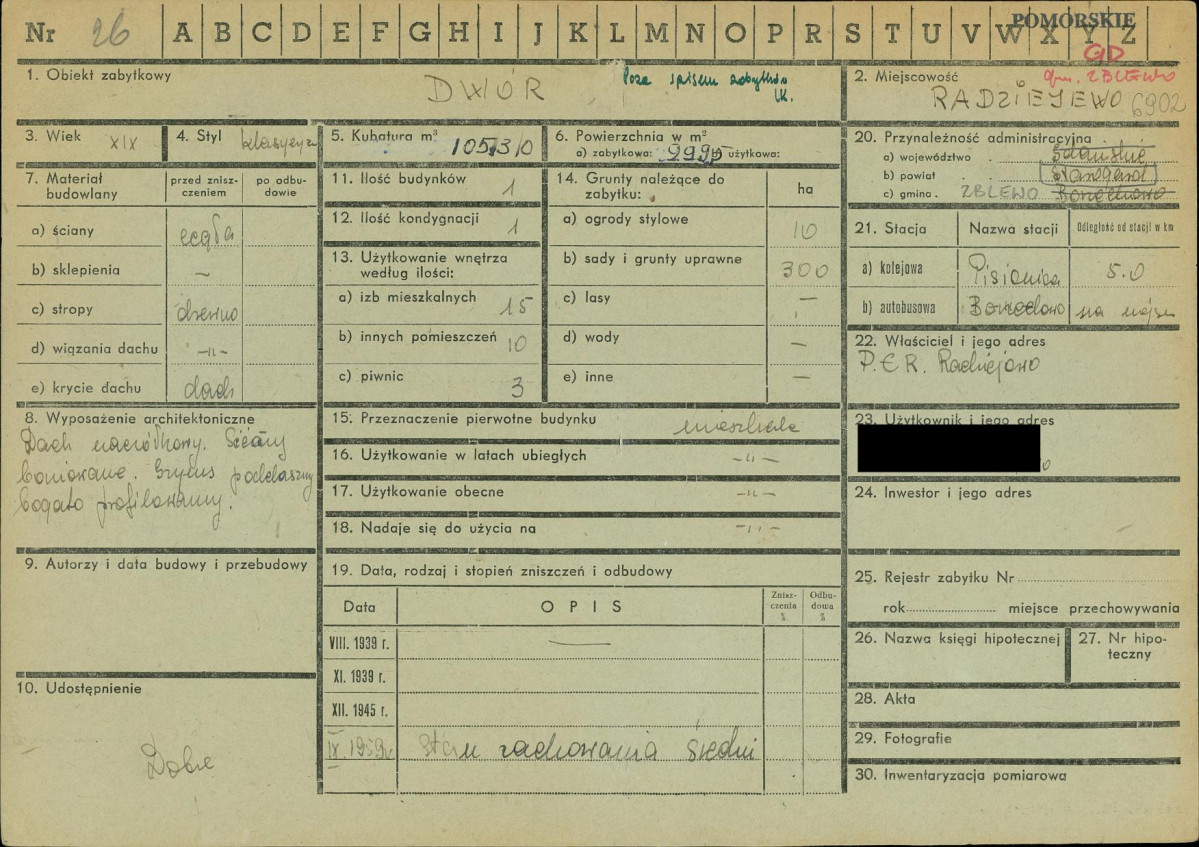 Nr 26 A B C D E F G H I J K L M N O P R S T U V W X Y Z
POMORSKIE
GD
1. Obiekt zabytkowy
DWÓR
Poza spisem zabytków
2. Miejscowość gm. ZBLEWO
RADZIEJEWO 6902
3. Wiek XIX
4. Styl
5. Kubatura m³
6. Powierzchnia w m²
a) zabytkowa: użytkowa:
20. Przynależność administracyjna
a) województwo Gdańskie
b) powiat Starogard
c) gmina ZBLEWO
7. Materiał budowlany
przed znisz-
czeniem
po odbu-
dowie
a) ściany cegła
b) sklepienia –
c) stropy drewno
d) wiązania dachu -"-
e) krycie dachu dach
11. Ilość budynków 1
12. Ilość kondygnacji 1
13. Użytkowanie wnętrza
według ilości:
a) izb mieszkalnych 15
b) innych pomieszczeń 10
c) piwnic 3
14. Grunty należące do
zabytku: ha
a) ogrody stylowe 10
b) sady i grunty uprawne 300
c) lasy –
d) wody –
e) inne –
21. Stacja Nazwa stacji Odległość od stacji w km
a) kolejowa 5.0
b) autobusowa na
22. Właściciel i jego adres
P.G.R. Radziejewo
8. Wyposażenie architektoniczne
Dach naczółkowy. Ściany
boniowane. Gzyms
bogato profilowany.
15. Przeznaczenie pierwotne budynku mieszkalne
16. Użytkowanie w latach ubiegłych -"-
17. Użytkowanie obecne -"-
18. Nadaje się do użycia na -"-
23. Użytkownik i jego adres
24. Inwestor i jego adres
9. Autorzy i data budowy i przebudowy
19. Data, rodzaj i stopień zniszczeń i odbudowy
Data OPIS
Znisz-
czenia
%
Odbu-
dowa
%
VIII. 1939 r. —
XI. 1939 r.
XII. 1945 r.
IX 1959r stan zachowania średni
25. Rejestr zabytku Nr
rok miejsce przechowywania
26. Nazwa księgi hipotecznej
27. Nr hipo-
teczny
10. Udostępnienie
Dobre
28. Akta
29. Fotografie
30. Inwentaryzacja pomiarowa